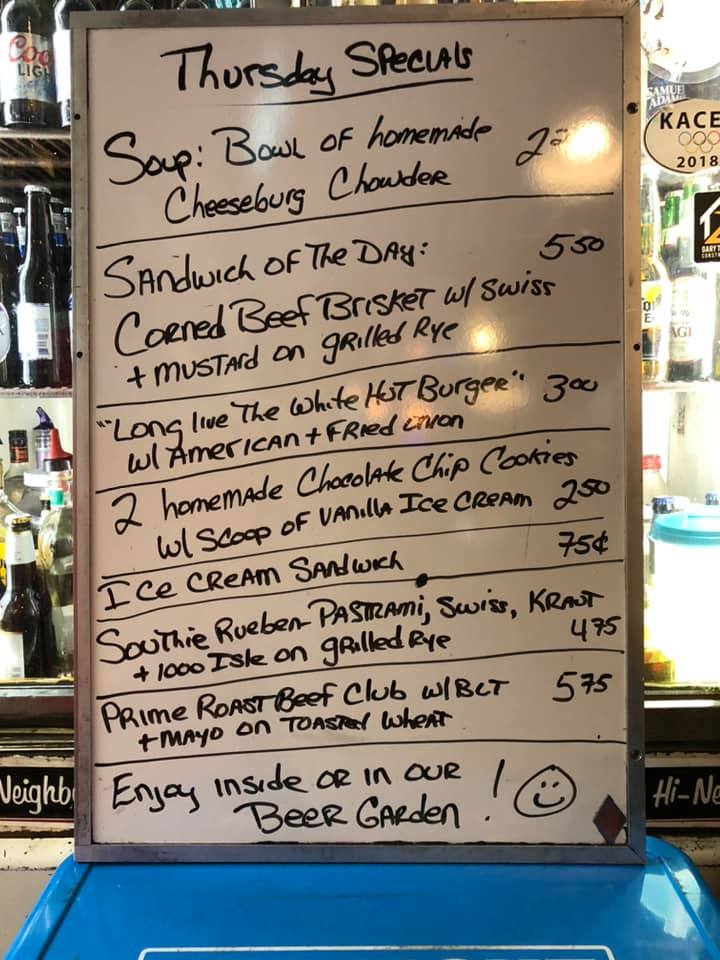 Thursday Specials
Soup: Bowl of homemade
Cheeseburg Chowder
Sandwich of The Day: 5 50
Corned Beef Brisket w/ Swiss
+ mustard on grilled Rye
"Long live The White Hot Burger" 3 00
w/ American + Fried onion
2 homemade Chocolate Chip Cookies
w/ Scoop of Vanilla Ice Cream 2 50
Ice Cream Sandwich 75¢
Southie Rueben - Pastrami, Swiss, Kraut
+ 1000 Isle on grilled Rye 4 75
Prime Roast Beef Club w/ BLT 5 75
+ mayo on Toasted Wheat
Enjoy inside or in our
Beer Garden !
Coors
LIGHT
SAMUEL
ADAMS
KACE
2018
GARY
Neighb
Hi-Ne